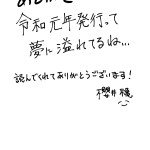 令和元年発行って
夢に溢れてるね…
読んでくれてありがとうございます!
櫻井